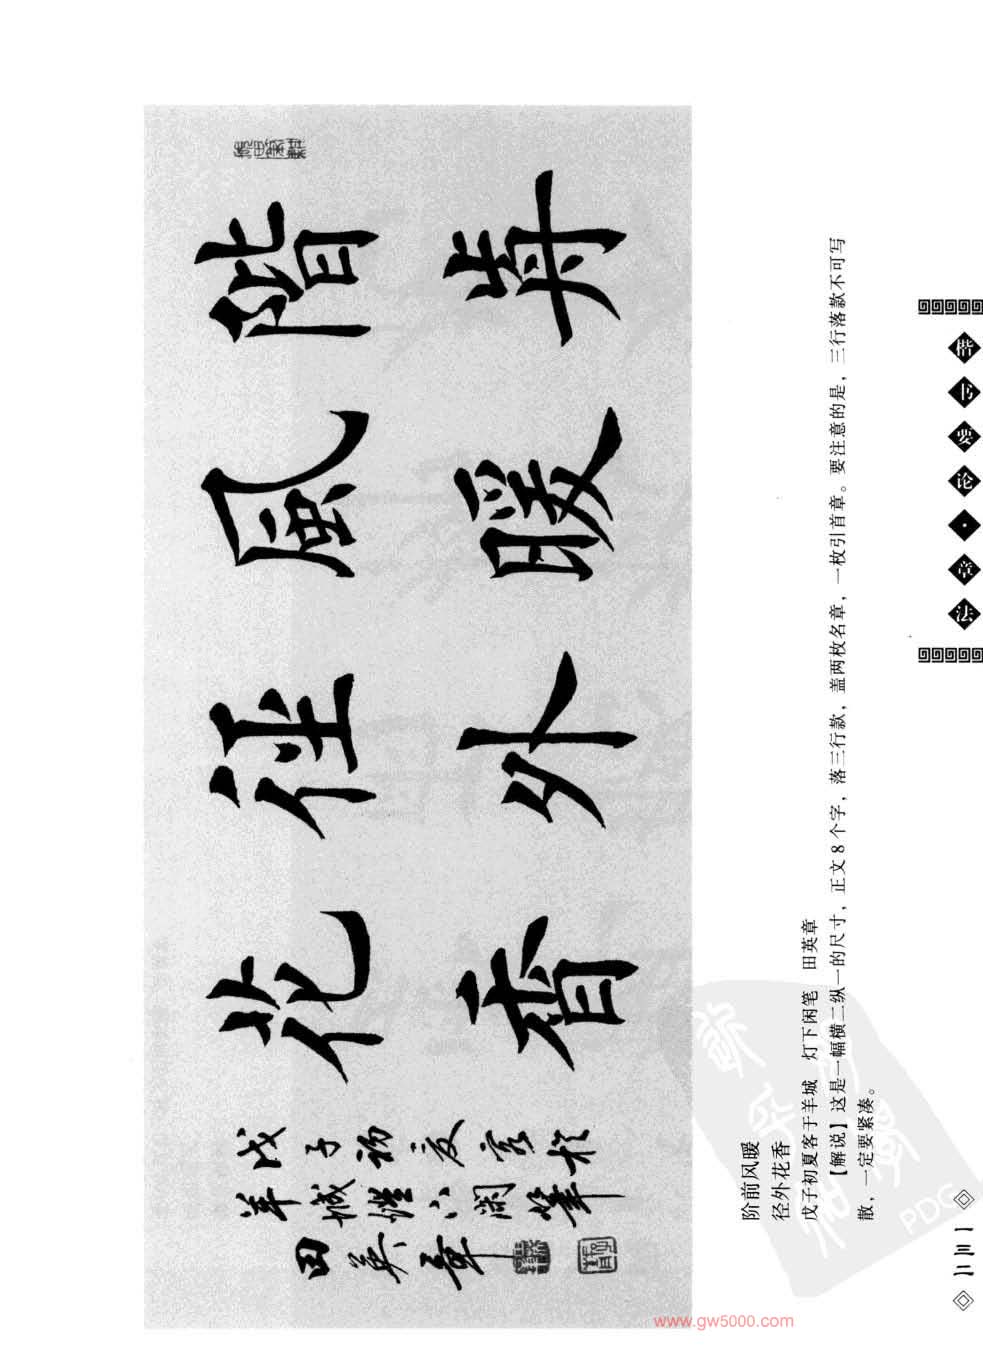 階前
風暖
徑外
花香
戊子初夏客於
羊城燈下闲筆
田英章
阶前风暖
径外花香
戊子初夏客于羊城　灯下闲笔　田英章
【解说】这是一幅横二纵一的尺寸，正文8个字，落三行款，盖两枚名章，一枚引首章。要注意的是，三行落款不可写
散，一定要紧凑。
二三一
PDG
www.gw5000.com